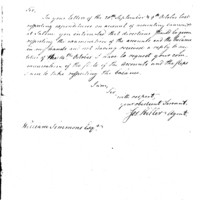 Sir,
In your letter of the 20th September & 4th October last
respecting expenditures on account of recruiting Concerns
at Salem you intimated that directions should be given
respecting the examination of the accounts and the balance
in my hands and not having received a reply to my
letter of the 14th October I have to request your com-
munication of the state of the accounts and the steps
I am to take respecting the balance.
I am,
Sir,
with respect
your obedient Servant.
Jos. Miller Agent.
William Simmons Esqr.